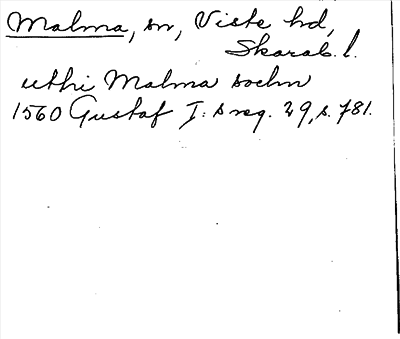 Malma, sn, Viste hd,
Skarab. l.
uthi Malma sochn
1560 Gustaf I: s reg. 29, s. 781.